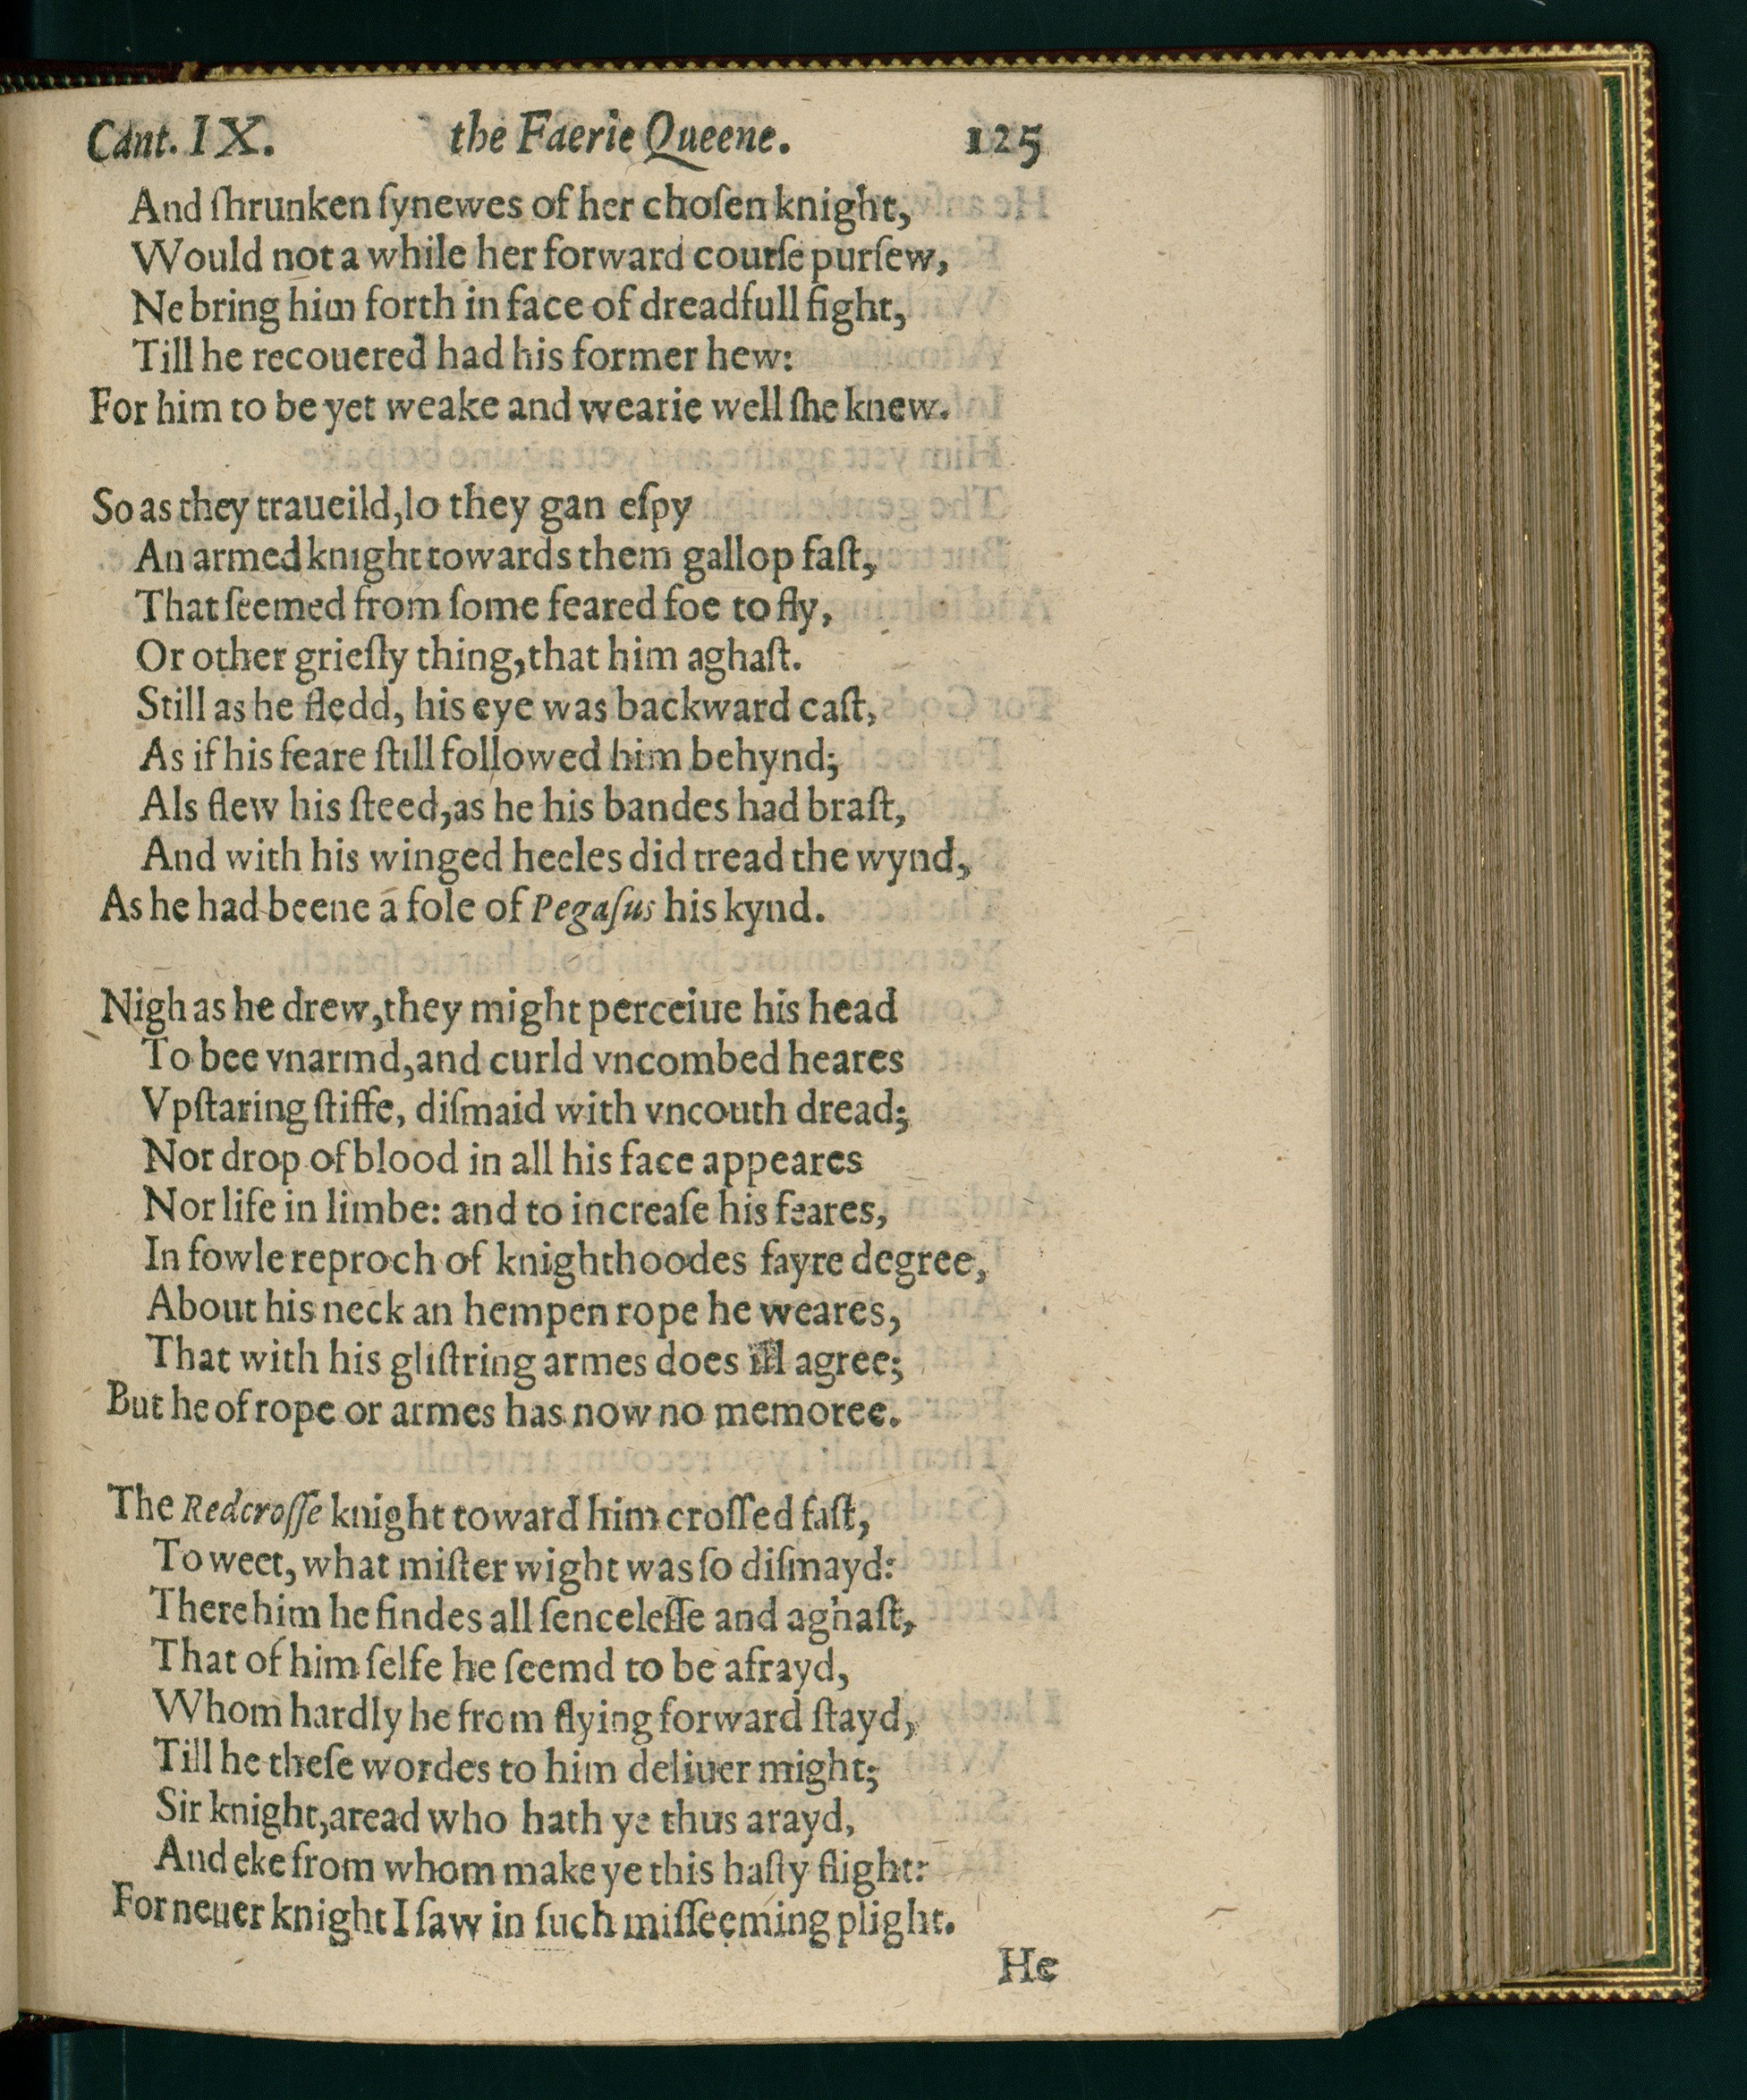 Cant. IX. the Faerie Queene. 125
And ſhrunken ſynewes of her choſen knight,
Would not a while her forward courſe purſew,
Ne bring him forth in face of dreadfull fight,
Till he recouered had his former hew:
For him to be yet weake and wearie well ſhe knew.
So as they traueild, lo they gan eſpy
An armed knight towards them gallop faſt,
That ſeemed from ſome feared foe to fly,
Or other grieſly thing, that him aghaſt.
Still as he fledd, his eye was backward caſt,
As if his feare ſtill followed him behynd;
Als flew his ſteed, as he his bandes had braſt,
And with his winged heeles did tread the wynd,
As he had beene a fole of Pegaſus his kynd.
Nigh as he drew, they might perceiue his head
To bee vnarmd, and curld vncombed heares
Vpſtaring ſtiffe, diſmaid with vncouth dread;
Nor drop of blood in all his face appeares
Nor life in limbe: and to increaſe his feares,
In fowle reproch of knighthoodes fayre degree,
About his neck an hempen rope he weares,
That with his gliſtring armes does ill agree;
But he of rope or armes has now no memoree.
The Redcroſſe knight toward him croſſed faſt,
To weet, what miſter wight was ſo diſmayd:
There him he findes all ſenceleſſe and aghaſt,
That of him ſelfe he ſeemd to be afrayd,
Whom hardly he from flying forward ſtayd,
Till he theſe wordes to him deliuer might;
Sir knight, aread who hath ye thus arayd,
And eke from whom make ye this haſty flight:
For neuer knight I ſaw in ſuch miſſeeming plight.
He